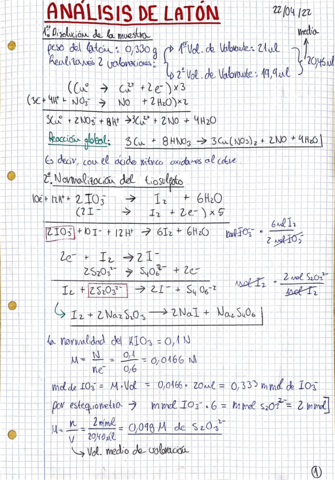 ANÁLISIS DE LATÓN
22/04/22
1º Disolución de la muestra
media
peso del latón: 0,330g
1ª Vol. de Valorante: 21ml
Realizamos 2 valoraciones:
20,45ml
2ª Vol. de Valorante: 19,9ml
(Cu⁰ → Cu²⁺ + 2e⁻)×3
(3e⁻ + 4H⁺ + NO₃⁻ → NO + 2H₂O)×2
3Cu⁰ + 2NO₃⁻ + 8H⁺ → 3Cu²⁺ + 2NO + 4H₂O
Reacción global: 3Cu + 8HNO₃ → 3Cu(NO₃)₂ + 2NO + 4H₂O
Es decir, con el ácido nítrico oxidamos al cobre
2º Normalización del tiosulfato
10e⁻ + 12H⁺ + 2IO₃⁻ → I₂ + 6H₂O
(2I⁻ → I₂ + 2e⁻)×5
2IO₃⁻ + 10I⁻ + 12H⁺ → 6I₂ + 6H₂O
mol IO₃⁻ · 6mol I₂ / 2 mol IO₃⁻
2e⁻ + I₂ → 2I⁻
2S₂O₃²⁻ → S₄O₆²⁻ + 2e⁻
I₂ + 2S₂O₃²⁻ → 2I⁻ + S₄O₆⁻²
mol I₂ · 2 mol S₂O₃²⁻ / 1 mol I₂
I₂ + 2Na₂S₂O₃ → 2NaI + Na₂S₄O₆
la normalidad del KIO₃ = 0,1N
M = N/ne⁻ = 0,1/0,6 = 0,0166 M
mol de IO₃⁻ = M·Vol = 0,0166 · 20ml = 0,333 mmol de IO₃⁻
por estequiometría → mmol IO₃⁻ · 6 = mmol S₂O₃²⁻ = 2 mmol
M = n/V = 2mmol/20,40ml = 0,098 M de S₂O₃²⁻
Vol medio de valoración
1